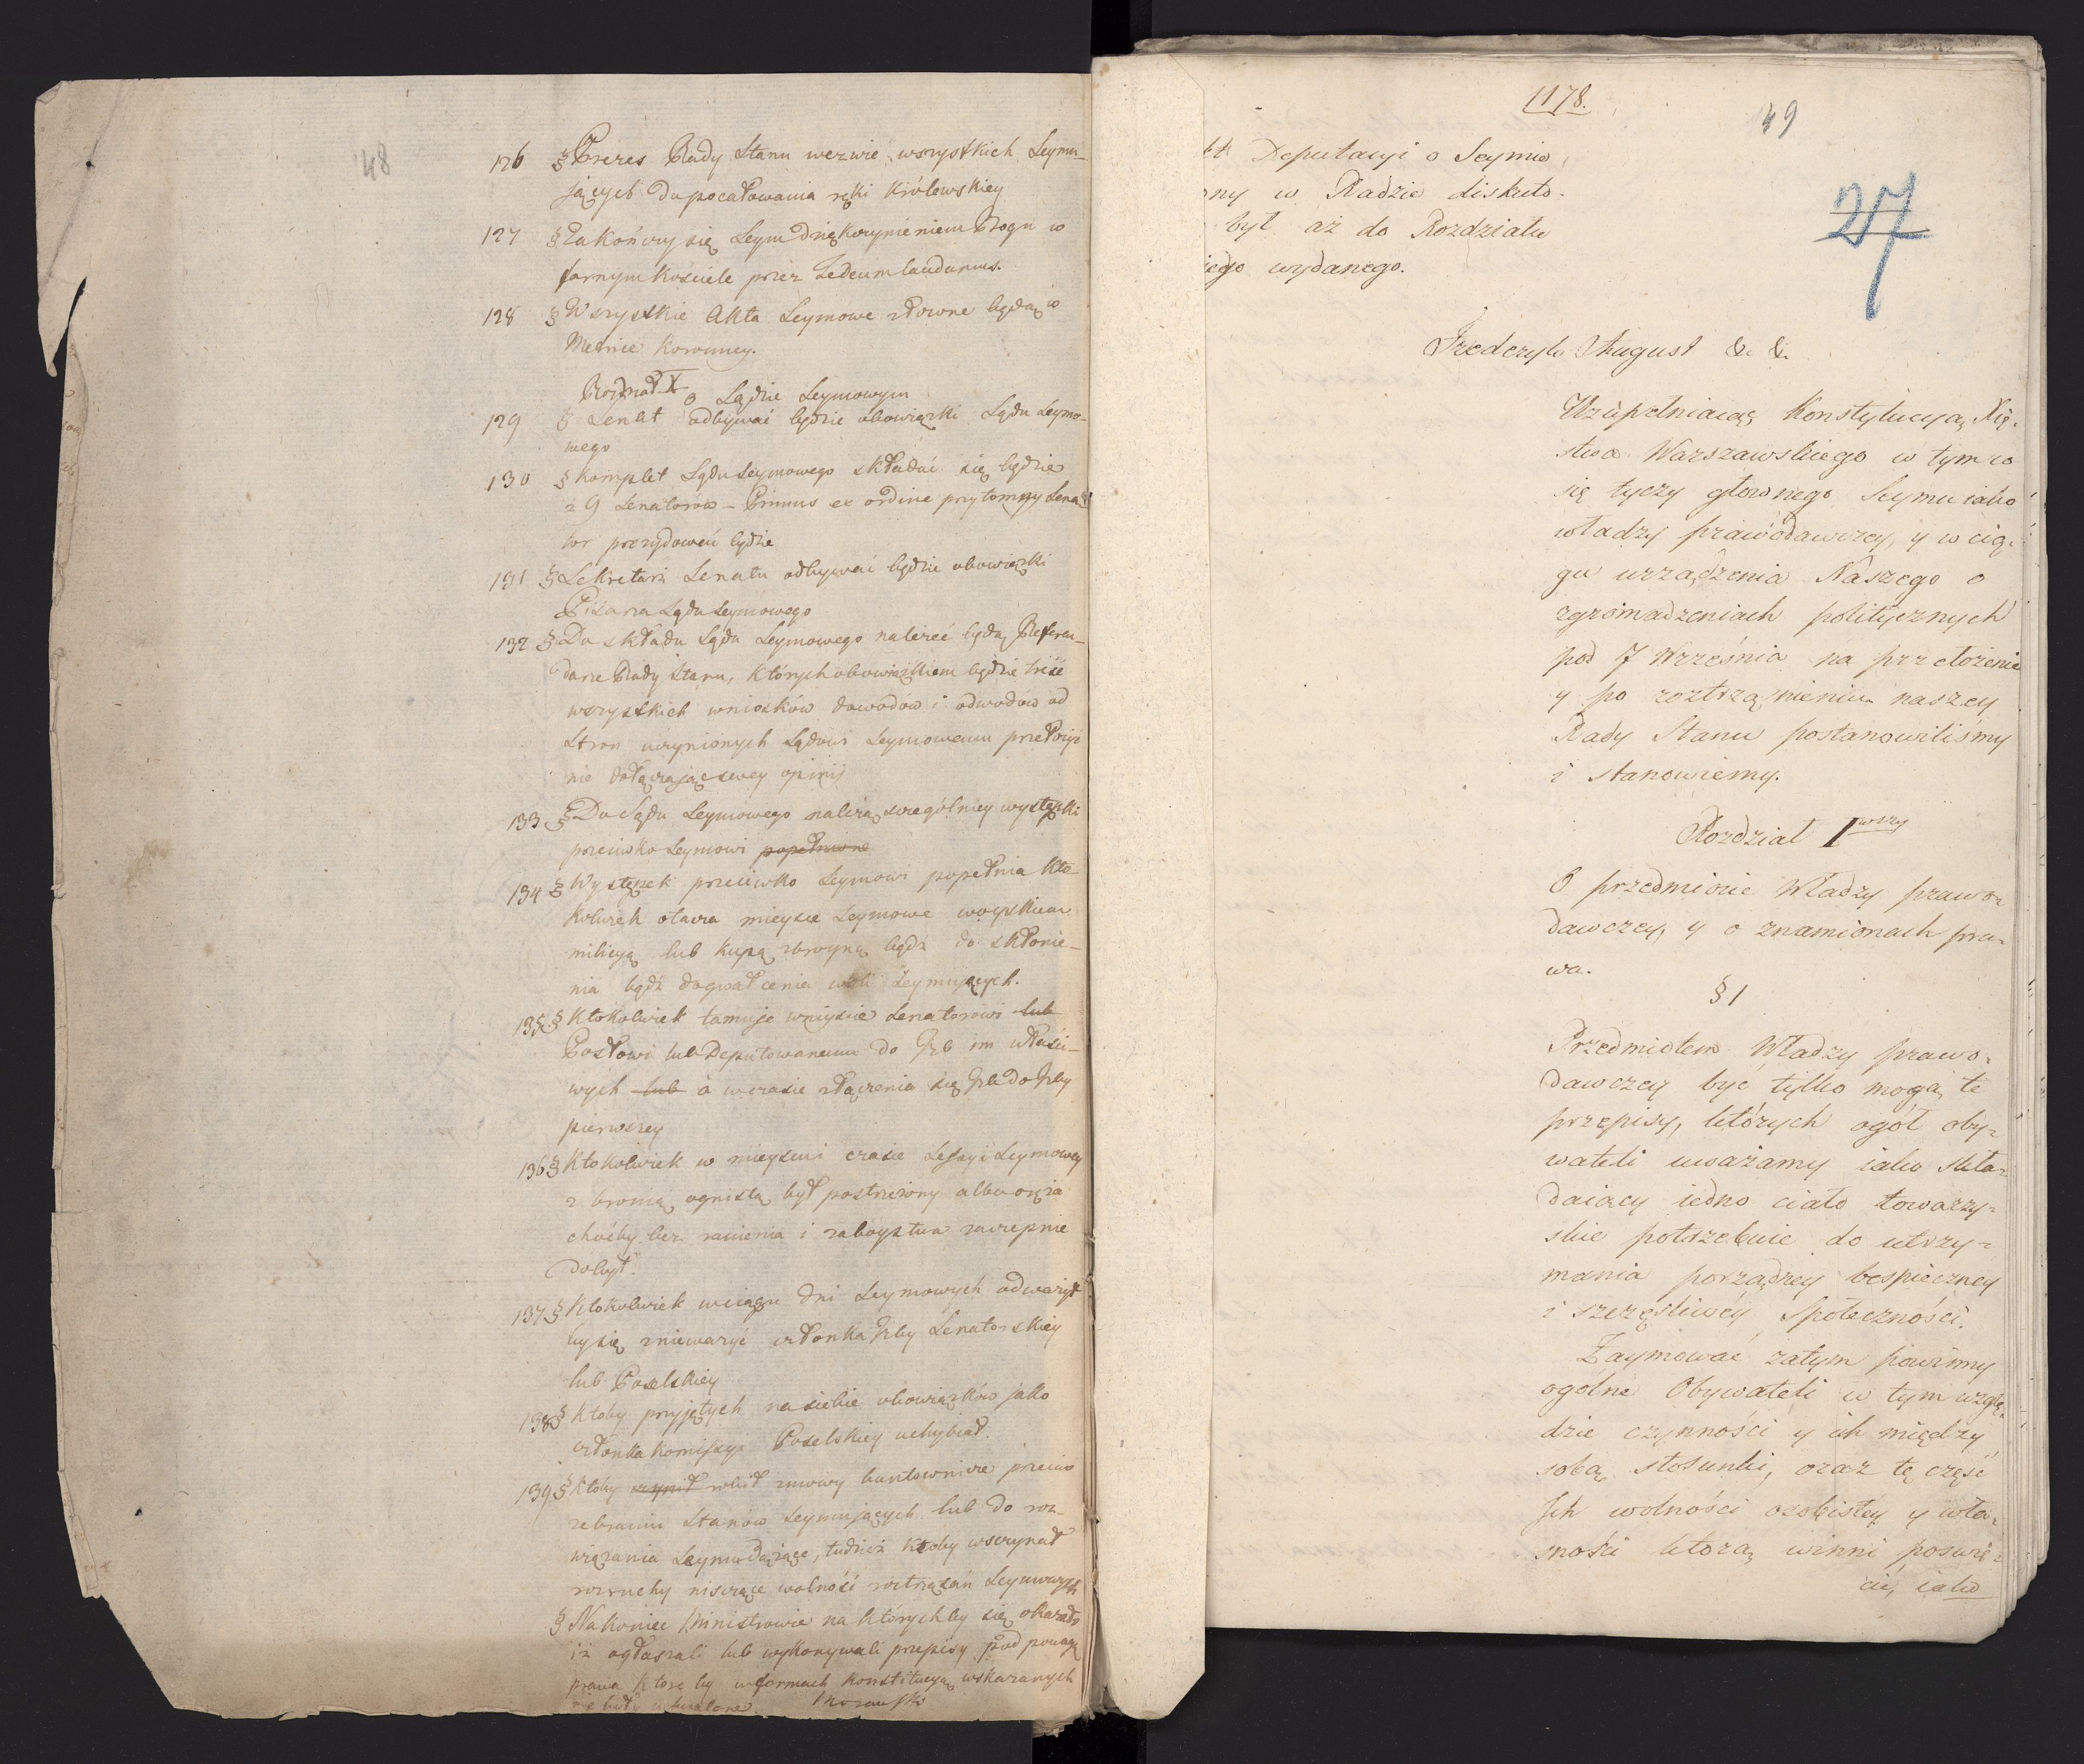 48
126 § Prezes Rady Stanu wezwie wszystkich Seymu-
jących do pocałowania ręki Królewskiey
127 § Zakończy się Seym dziękczynieniem Bogu w
farnym Kościele przez Te deum laudamus.
128 § Wszystkie Akta Seymowe złożone będą w
Metrice Koronney.
Rozdział X o Sądzie Seymowym
129 § Senat odbywać będzie obowiązki Sądu Seymo-
wego
130 § Komplet Sądu Seymowego składać się będzie
z 9 Senatorów – Primus ex ordine przytomny Sena-
tor prezydować będzie
131 § Sekretarz Senatu odbywać będzie obowiązki
Pisarza Sądu Seymowego
132 § Do składu Sądu Seymowego należeć będą Referen-
darze Rady Stanu, których obowiązkiem będzie treść
wszystkich wniosków dowodów i odwodów od
Stron uczynionych Sądowi Seymowemu przełożyć
nie dołączając swey opinij
133 § Do Sądu Seymowego należą szczególniey występki
przeciwko Seymowi popełnione
134 § Występek przeciwko Seymowi popełnia kto-
kolwiek otacza mieysce Seymowe woyskiem
milicyą lub kupą zbroyną bądź do skłonie-
nia bądź do gwałcenia woli Seymujących.
135 § Ktokolwiek tamuje wniyscie Senatorowi lub
Posłowi lub Deputowanemu do Izb im właści-
wych lub a w czasie złączenia się Izb do Izby
pierwszey
136 § Ktokolwiek w mieyscu i czasie Sessyi Seymowey
z bronią ognistą był postrzeżony albo oręża
choćby bez ranienia i zaboystwa zaczepnie
dobył.
137 § Ktokolwiek w ciągu dni Seymowych odważył
by się znieważyć członka Izby Senatorskiey
lub Poselskiey
138 § Ktoby przyjętych na siebie obowiązków jako
członka Komissyi Poselskiey uchybiał.
139 § Ktoby czynił robił zmowy buntownicze przeciw
zebraniu Stanów Seymujących lub do roz-
wiązania Seymu dążące, tudzież ktoby wszczynał
rozruchy niszczące wolność roztrząsań Seymowych
§ Nakoniec Ministrowie na którychby się okazało
iż ogłaszali lub wykonywali przepisy pod powagą
prawa które by w formach Konstitucyą wskazanych
nie były uchwalone
1178.
49
27
Deputacyi o Seymie
w Radzie diskuto-
był aż do Rozdziału
wydanego.
Frederyk August &. &.
Uzupełniaiąc Konstytucyą Xię-
stwa Warszawskiego w tym co
się tyczy głownego Seymu iako
władzy prawodawczey, y w cią-
gu urządzenia Naszego o
zgromadzeniach politycznych
pod 7 Września na przełożenie
y po roztrząśnieniu naszey
Rady Stanu postanowiliśmy
i stanowiemy.
Rozdział Iwszy
O przedmiocie Władzy prawo-
dawczey, y o znamionach pra-
wa.
§ 1
Przedmiotem Władzy prawo-
dawczey być tylko mogą te
przepisy, których ogół oby-
wateli uważamy iako skła-
daiący iedno ciało towarzy-
skie potrzebuie do utrzy-
mania porządney bespieczney
i szczęśliwey Społeczności.
Zaymować zatym powinny
ogolne Obywateli w tym wzglę-
dzie czynności y ich między
sobą stosunki, oraz tę część
Ich wolności osobistey y wła-
sności ktorą winni poświę-
cić, iako